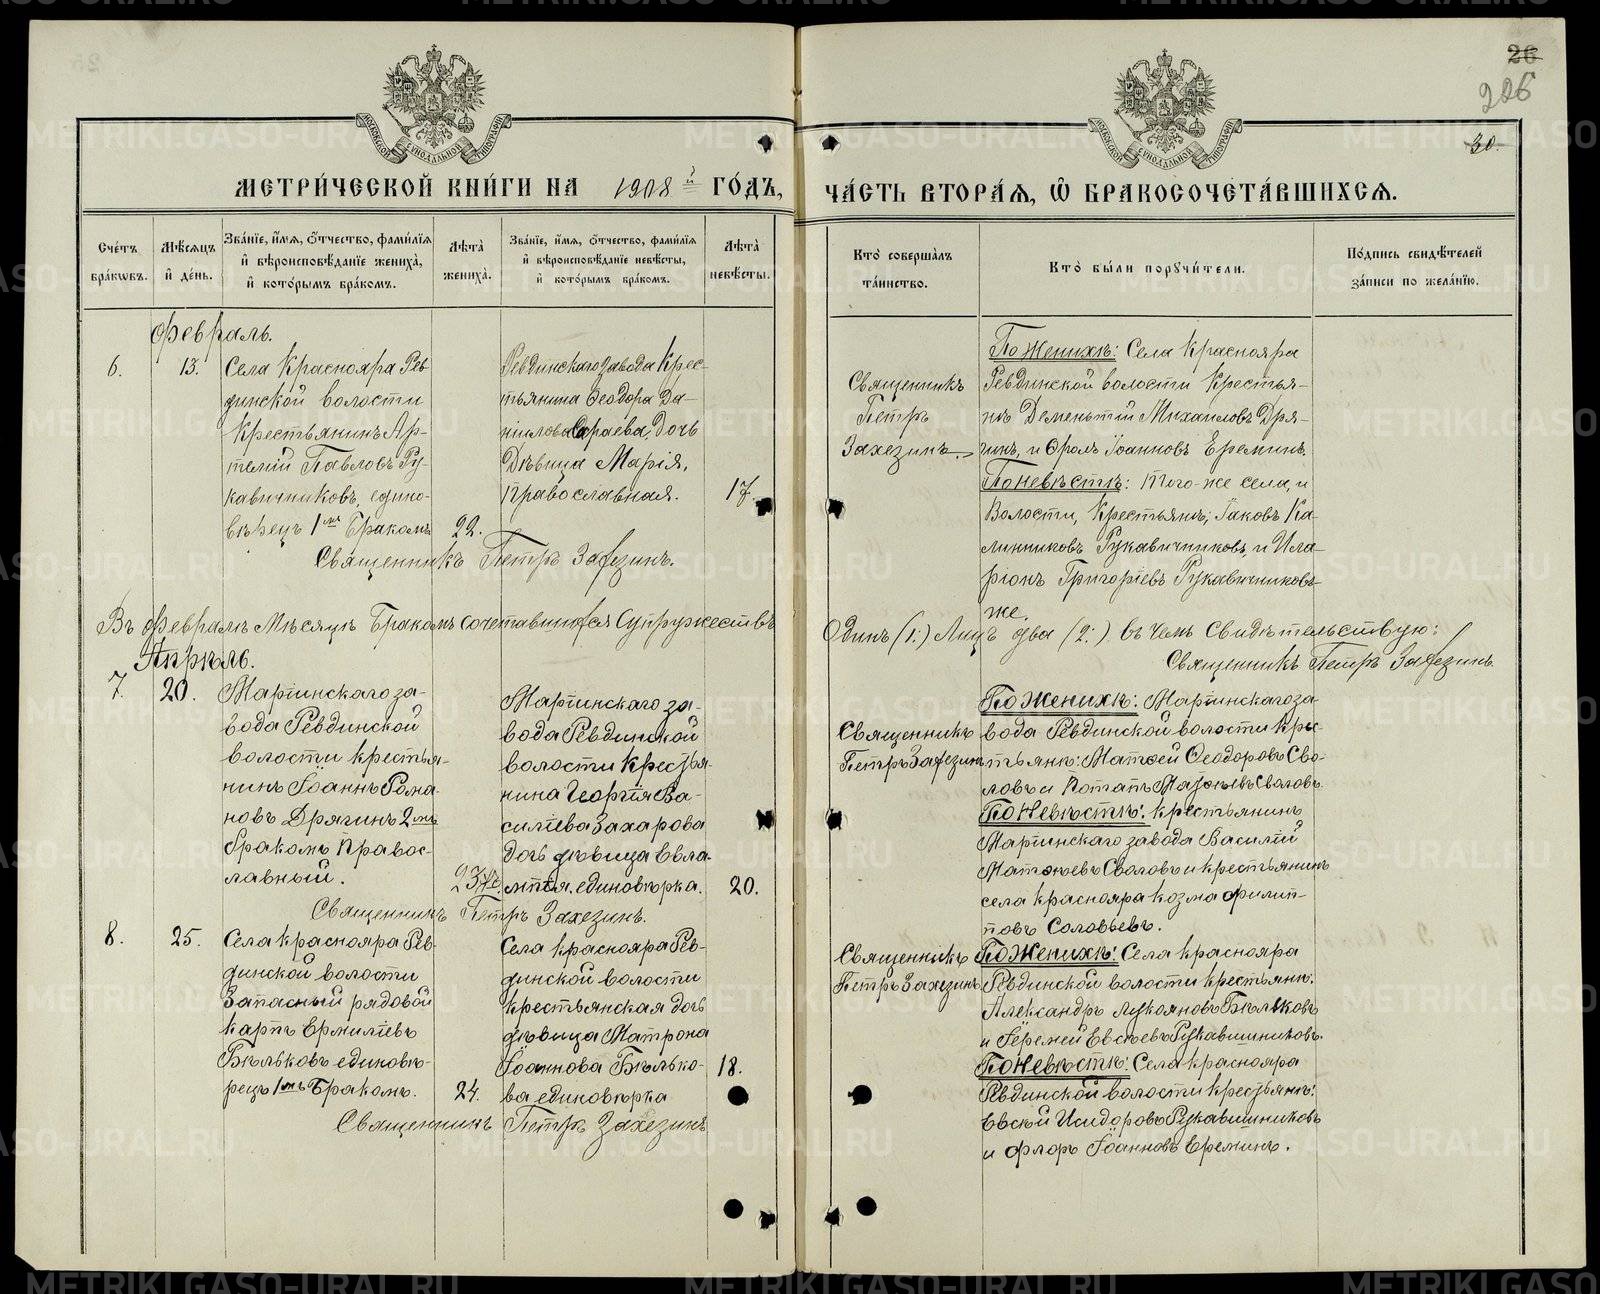 26
226
30.
МОСКОВСКОЙ СѴНОДАЛЬНОЙ ТИПОГРАФІИ
МОСКОВСКОЙ СѴНОДАЛЬНОЙ ТИПОГРАФІИ
МЕТРИ́ЧЕСКОЙ КНИ́ГИ НА 1908й ГО́ДЪ,
ЧА́СТЬ ВТОРА́Ѧ, Ѡ БРАКОСОЧЕТА́ВШИХСѦ.
Сче́тъ бра́кѡвъ.
Мѣ́сѧцъ и҆ де́нь.
Зва́нїе, и҆́мѧ, ѻ҆́тчество, фами́лїѧ и҆ вѣроисповѣ́данїе жениха̀, и҆ кото́рымъ бра́комъ.
Лѣ́та жениха̀.
Зва́нїе, и҆́мѧ, ѻ҆́тчество, фами́лїѧ и҆ вѣроисповѣ́данїе невѣ́сты, и҆ кото́рымъ бра́комъ.
Лѣ́та невѣ́сты.
Кто̀ соверша́лъ та́инство.
Кто̀ бы́ли порꙋчи́тели.
По́дпись свидѣ́телей за́писи по жела́нїю.
Февраль.
6.
13.
Села Краснояра Рев
динской волости
крестьянинъ Ар-
темій Павловъ Ру-
кавичниковъ, едино-
вѣрецъ 1мъ бракомъ
22.
Ревдинскаго завода крес-
тьянина Ѳеодора Да-
нилова Сараева, дочь
дѣвица Марія,
православная.
17.
Священникъ
Петръ
Захезинъ.
По Женихѣ: Села Краснояра
Ревдинской волости крестья-
нѣ Дементій Михаиловъ Дря-
гинъ, и Фролъ Іоанновъ Ереминъ.
По Невѣстѣ: Того-же села, и
волости, крестьяне; Іаковъ Ка-
линниковъ Рукавичниковъ, и Ила-
ріонъ Григоріевъ Рукавичниковъ
же.
Священникъ Петръ Захезинъ.
Въ Февралѣ Мѣсяцѣ Бракомъ сочетавшихся Супружествъ
Одинъ (1:) Лицъ два (2:) въ чемъ Свидѣтельствую:
Священникъ Петръ Захезинъ
Апрѣль.
7.
20.
Маріинскаго за-
вода Ревдинской
волости крестья-
нинъ Іоаннъ Рома-
новъ Дрягинъ 2мъ
бракомъ Правос-
лавный.
Маріинскаго за-
вода Ревдинской
волости крестья-
нина Георгія Ва-
силіева Захарова
дочь дѣвица Евла-
мпія, единовѣрка.
20.
Священникъ
Петръ Захезинъ
По Женихѣ: Маріинскаго за
вода Ревдинской волости крес-
тьянѣ: Матѳей Ѳеодоровъ Сво-
ловъ и Потапъ Матѳѣевъ Своловъ
По Невѣстѣ: крестьянинъ
Маріинскаго завода Василій
Матѳѣевъ Своловъ и крестьянинъ
села Краснояра Козма Филип-
повъ Соловьевъ.
Священникъ Петръ Захезинъ.
8.
25.
Села Краснояра Рев-
динской волости
Запасный рядовой
Карпъ Ермиліевъ
Бѣльковъ единовѣ-
рецъ 1мъ бракомъ.
24.
Села Краснояра Рев-
динской волости
крестьянская дочь
дѣвица Матрона
Іоаннова Бѣлько-
ва единовѣрка
18.
Священникъ
Петръ Захезинъ
По Женихѣ: Села Краснояра
Ревдинской волости крестьянѣ:
Александръ Лукояновъ Бѣльковъ
и Іеремей Евсѣевъ Рукавишниковъ.
По Невѣстѣ: Села Краснояра
Ревдинской волости крестьянѣ:
Евсѣй Исидоровъ Рукавишниковъ
и Флоръ Іоанновъ Ереминъ.
Священникъ Петръ Захезинъ
METRIKI.GASO-URAL.RU